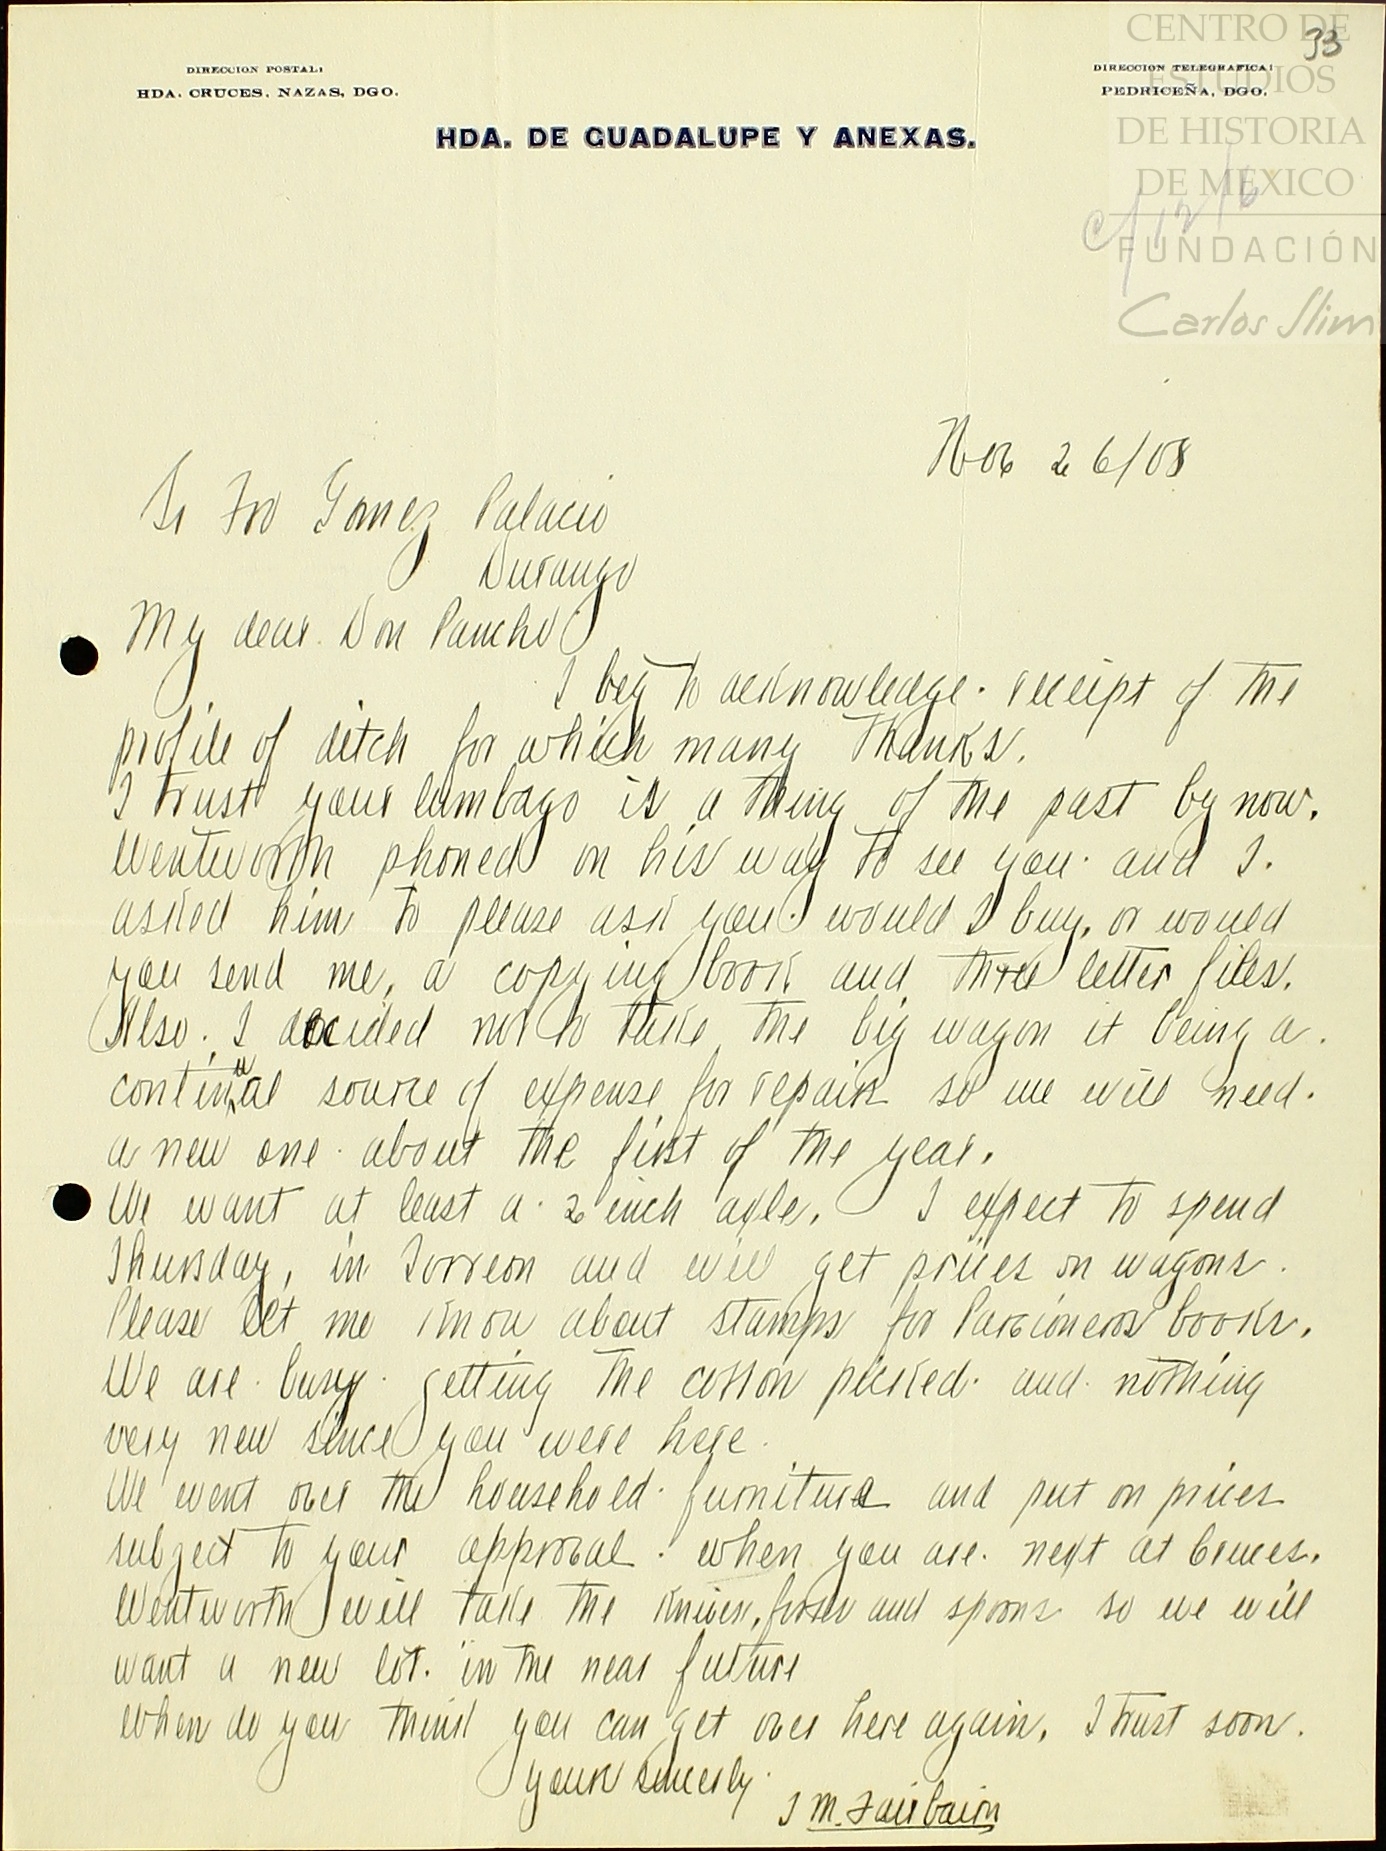 33
CENTRO DE
ESTUDIOS
DE HISTORIA
DE MEXICO
FUNDACIÓN
Carlos Slim
DIRECCION POSTAL:
HDA. CRUCES, NAZAS, DGO.
DIRECCION TELEGRAFICA:
PEDRICEÑA, DGO.
HDA. DE GUADALUPE Y ANEXAS.
Nov 26/08
Sr Fco Gomez Palacio
Durango
My dear Don Pancho
I beg to acknowledge. receipt of the
profile of ditch for which many Thanks.
I trust your lumbago is a thing of the past by now.
Wentworth phoned on his way to see you. and I.
asked him to please ask you. would I buy, or would
you send me, a copying book and three letter files.
Also. I decided not to take the big wagon it being a.
continual source of expense for repairs so we will need.
a new one. about the first of the year.
We want at least a. 2 inch axle. I expect to spend
Thursday, in Torreon and will get prices on wagons.
Please let me know about stamps for Parcioneros books.
We are. busy. getting the cotton picked. and. nothing
very new since you were here.
We went over the household. furniture and put on prices
subject to your approval. when you are. next at Cruces.
Wentworth will take the knives, forks and spoons so we will
want a new lot. in the near future
When do you think you can get over here again. I trust soon.
yours sincerly.
J M. Fairbairn